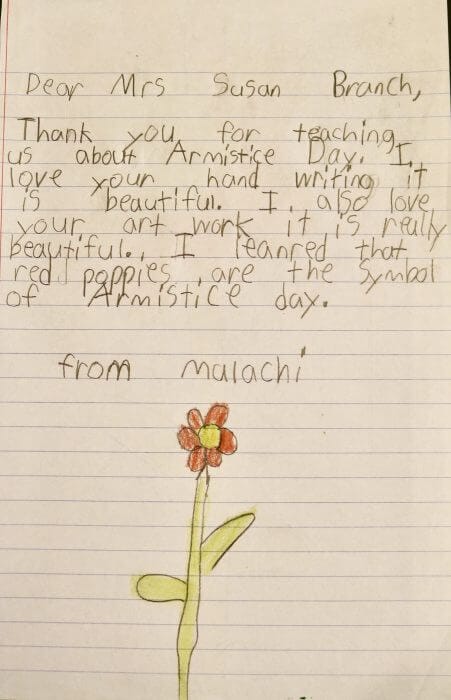 Dear Mrs Susan Branch,
Thank you for teaching
us about Armistice Day. I
love your hand writing it
is beautiful. I also love
your art work it is really
beautiful. I leanred that
red poppies are the symbol
of Armistice day.
from malachi